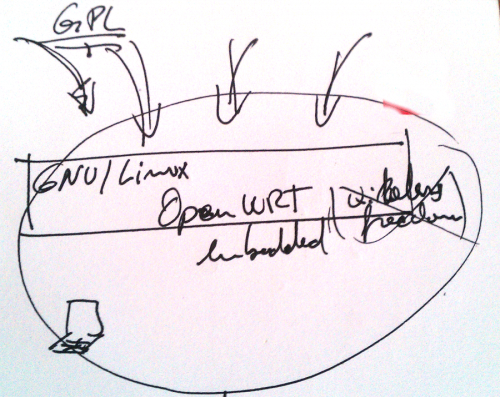 GPL
GNU/Linux
OpenWRT
Embedded
wireless
freedom